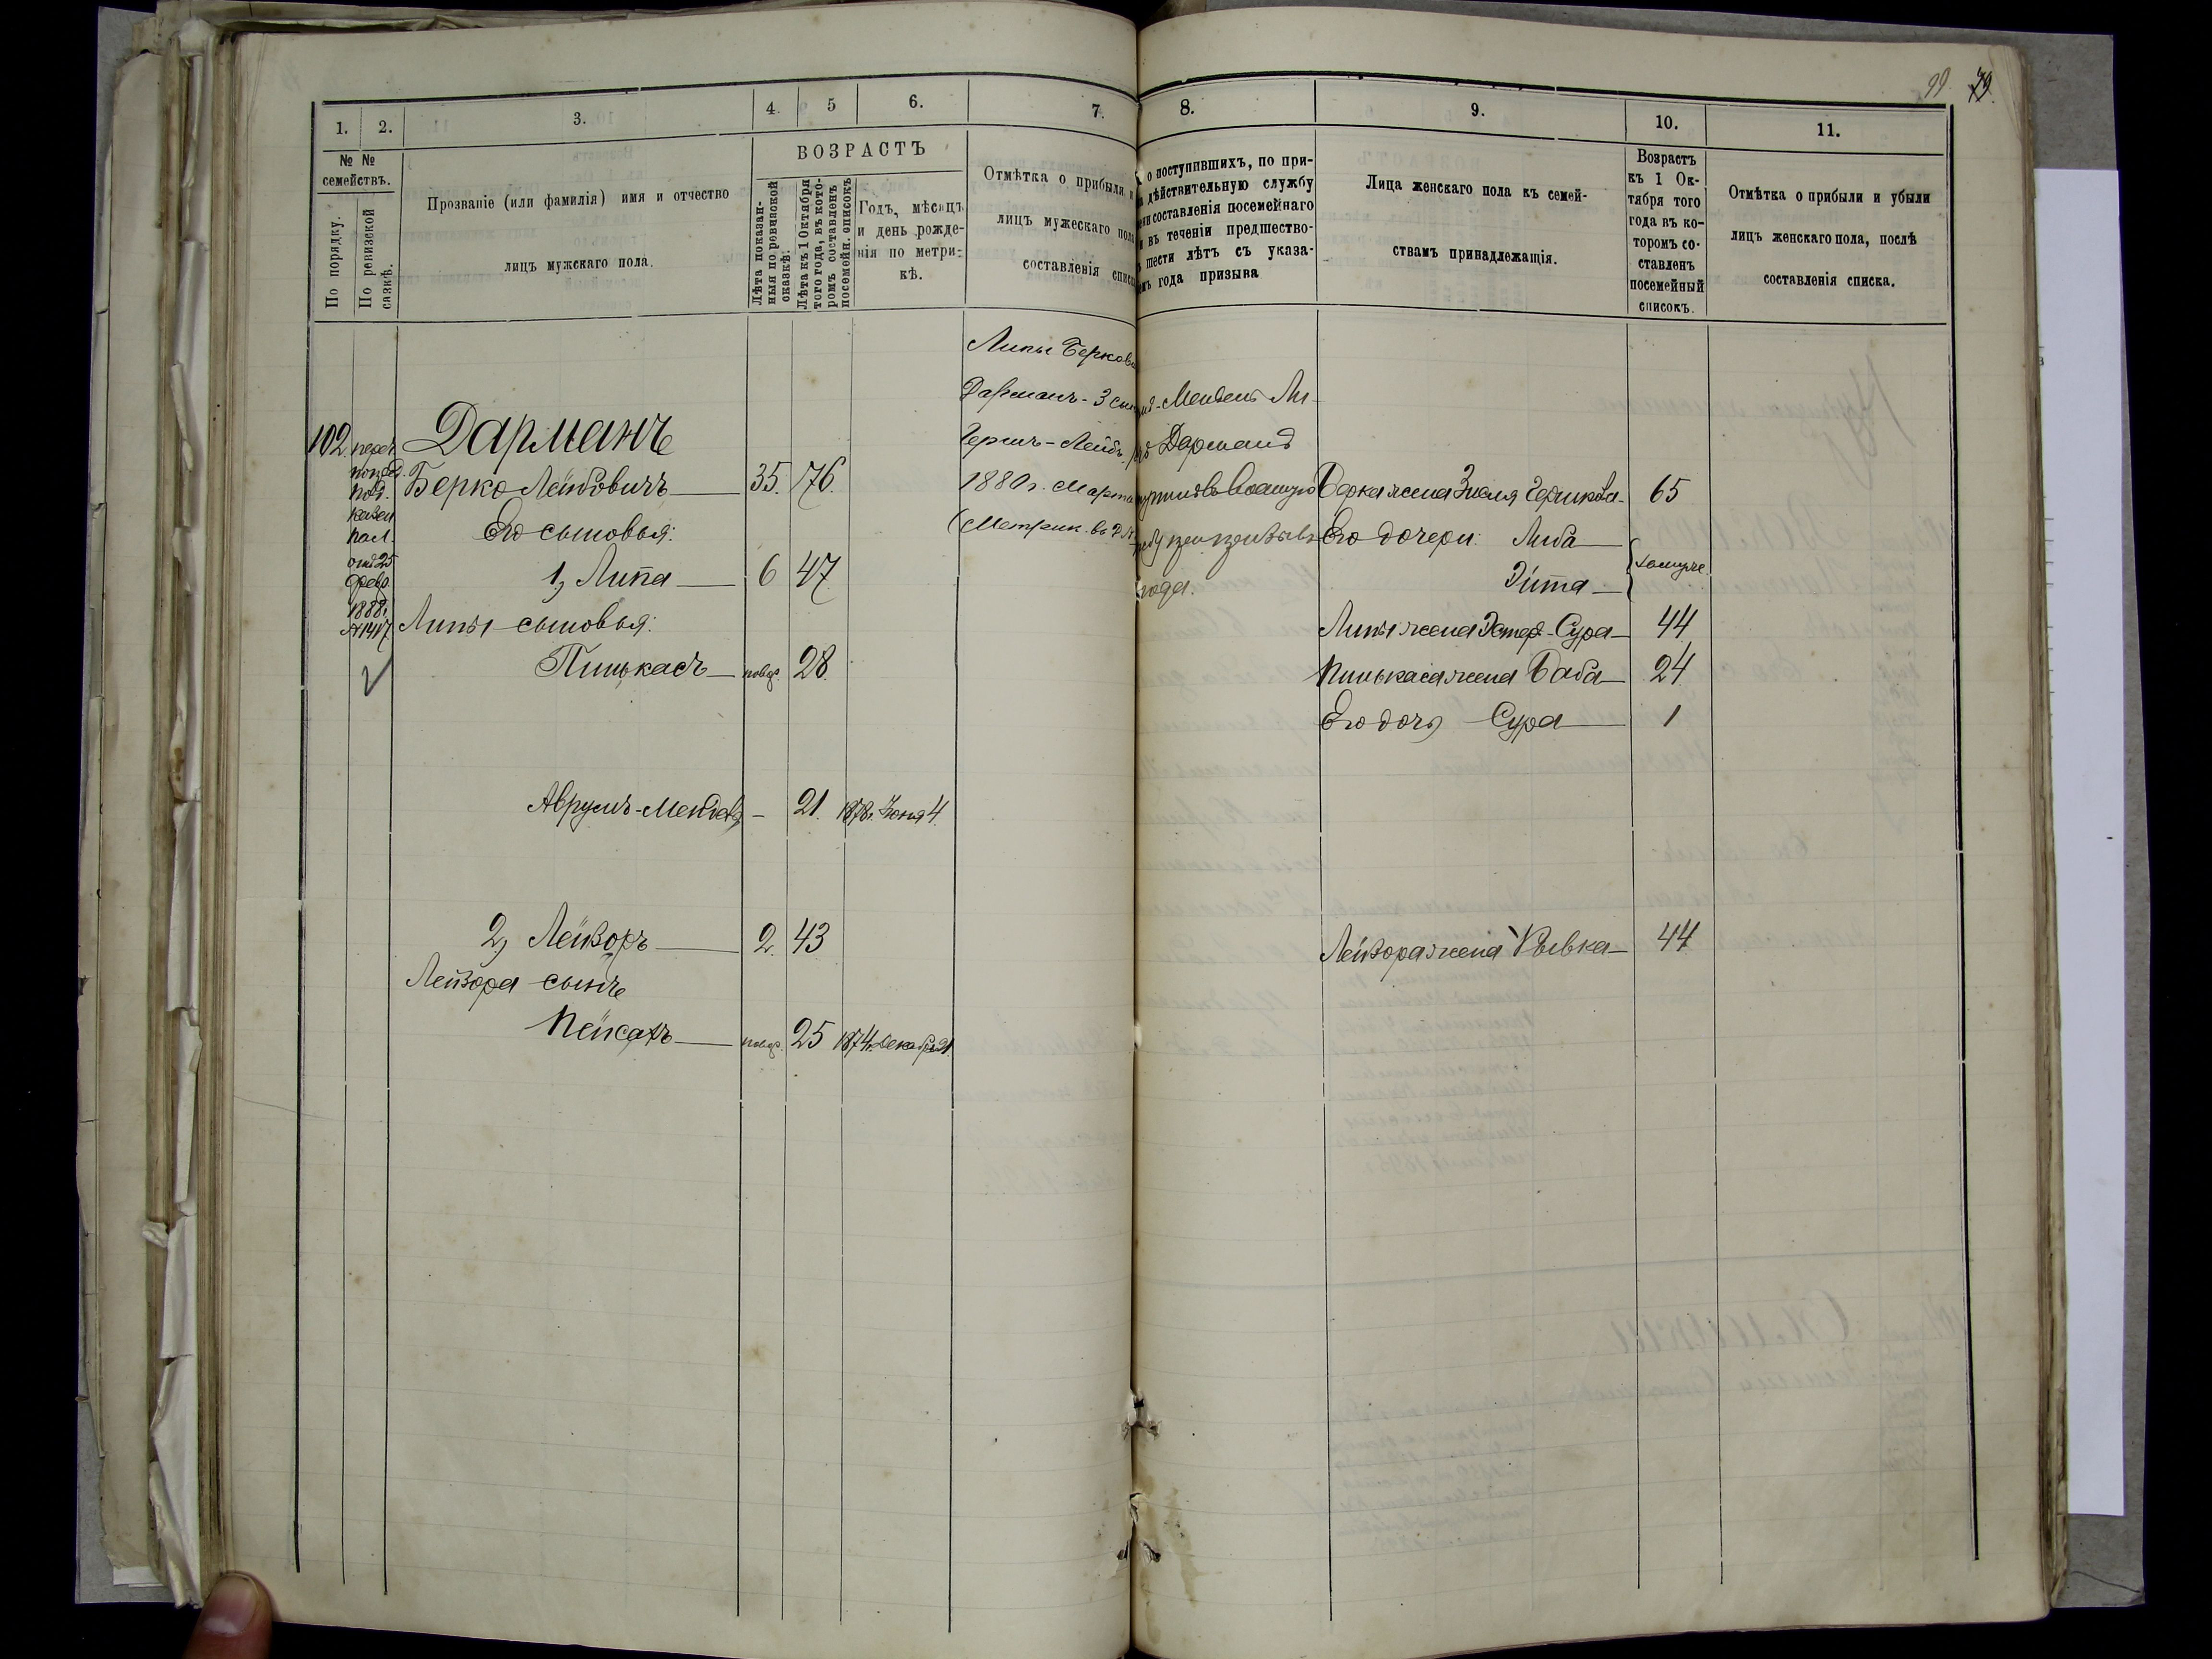 99. 79.
1.
2.
3.
4.
5
6.
7.
8.
9.
10.
11.
№ № семействъ.
По порядку.
По ревизской сказкѣ.
Прозваніе (или фамилія) имя и отчество
лицъ мужскаго пола.
ВОЗРАСТЪ
Лѣта показан-
ныя по ревизской
сказкѣ.
Лѣта къ 1 Октября
того года, въ кото-
ромъ составленъ
посемейн. списокъ
Годъ, мѣсяцъ
и день рожде-
нія по метри-
кѣ.
Отмѣтка о прибыли и
лицъ мужескаго пола
составленія списк
о поступившихъ, по при-
дѣйствительную службу
составленія посемейнаго
въ теченіи предшество-
шести лѣтъ съ указа-
года призыва
Лица женскаго пола къ семей-
ствамъ принадлежащія.
Возрастъ
къ 1 Ок-
тября того
года въ ко-
торомъ со-
ставленъ
посемейный
списокъ.
Отмѣтка о прибыли и убыли
лицъ женскаго пола, послѣ
составленія списка.
Липы Беркови
Дарманъ - 3 сын
-Мендель Ли-
Гершъ-Лейбъ
Дарманъ
1880 г. Марта
(Метрик. въ
года.
102
Дарманъ
Берко Лейбовичъ 35. 76.
Берка жена Зисля 65
Его сыновья:
Его дочери: Люба
1, Липа 6 47
Эйта
замуже.
25
1888г.
№1417
Липы сыновья:
Липы жена Эстер-Сура 44
Пинькасъ новор. 28.
Пинькаса жена Баба 24
Его дочь Сура 1
Аврумъ-Мендель - 21. 1878г. Іюня 4.
2, Лейзоръ 2. 43
Лейзора жена Рывка 44
Лейзора сынъ
Пейсахъ новор. 25 1874г. Декабря 21